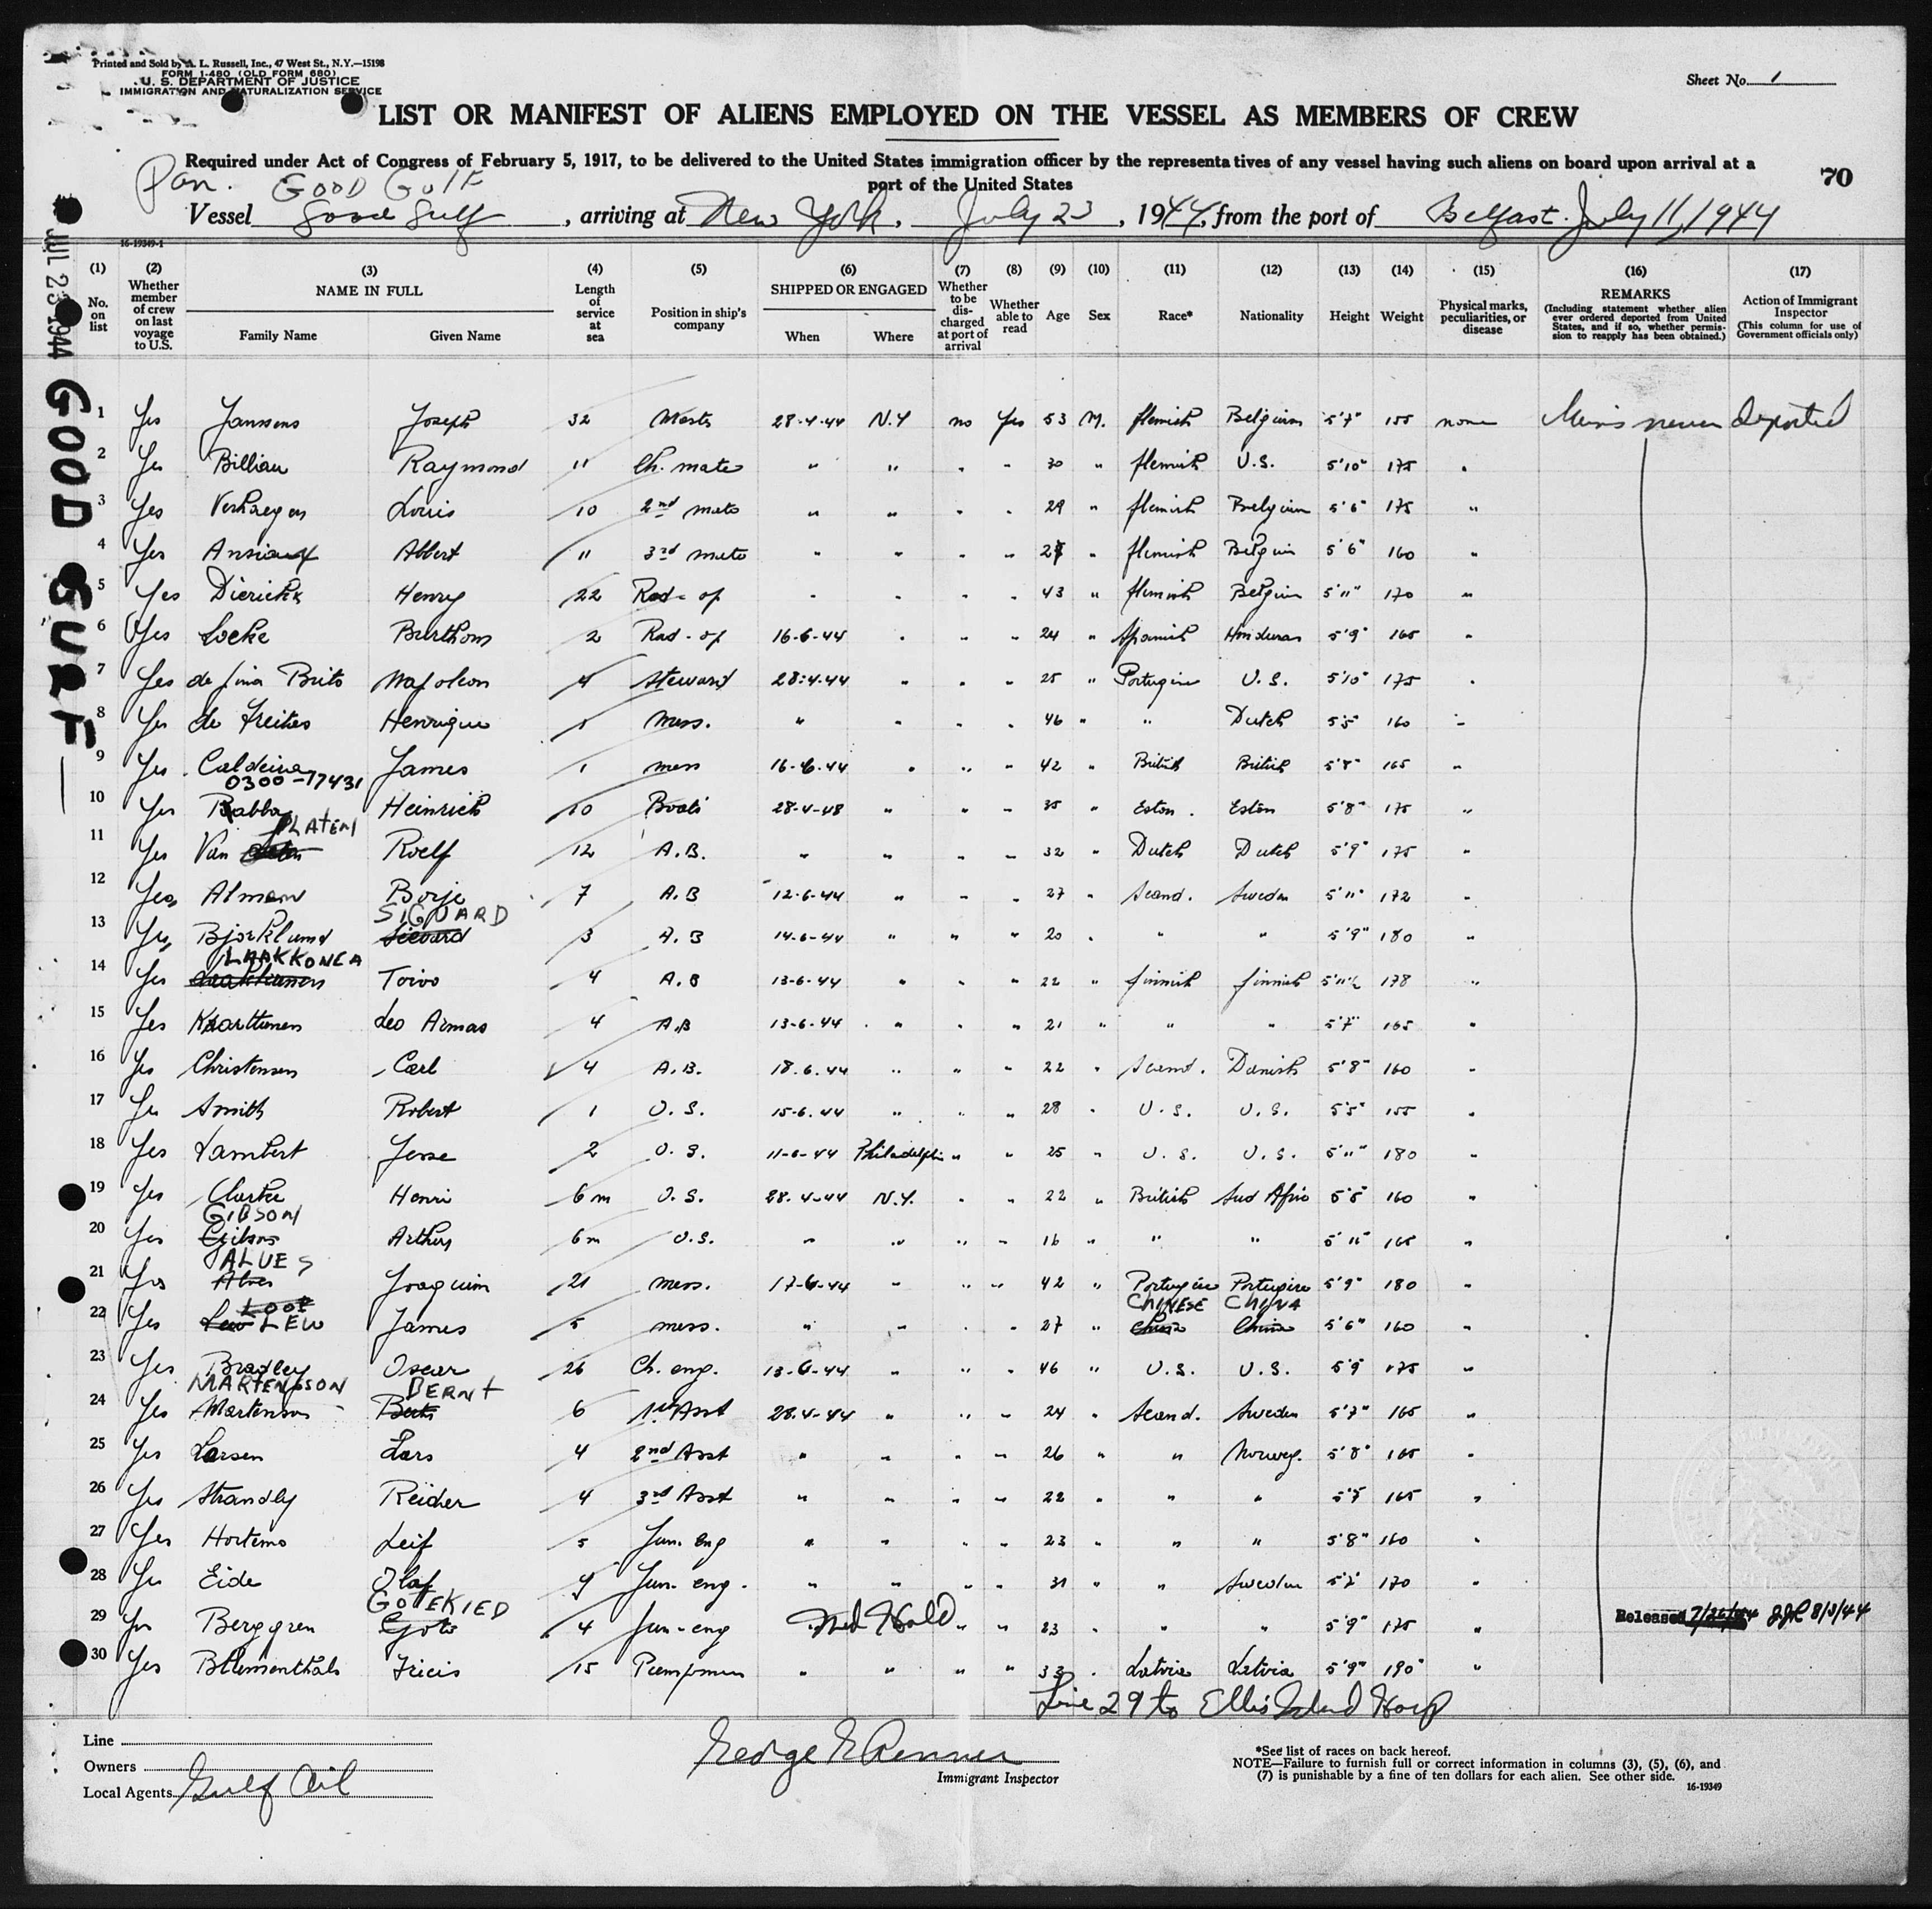 Printed and Sold by A. L. Russell, Inc., 47 West St., N.Y.—15198
FORM I-480 (OLD FORM 680)
U. S. DEPARTMENT OF JUSTICE
IMMIGRATION AND NATURALIZATION SERVICE
Sheet No. 1
LIST OR MANIFEST OF ALIENS EMPLOYED ON THE VESSEL AS MEMBERS OF CREW
Required under Act of Congress of February 5, 1917, to be delivered to the United States immigration officer by the representatives of any vessel having such aliens on board upon arrival at a
port of the United States
70
Pan. GOOD GULF
Vessel Good Gulf, arriving at New York, July 23, 1944, from the port of Belfast. July 11, 1944
16-19349-1
JUL 23 1944 GOOD GULF
(1) (2) (3) (4) (5) (6) (7) (8) (9) (10) (11) (12) (13) (14) (15) (16) (17)
No. on list
Whether member of crew on last voyage to U.S.
NAME IN FULL
Family Name Given Name
Length of service at sea
Position in ship's company
SHIPPED OR ENGAGED
When Where
Whether to be discharged at port of arrival
Whether able to read
Age Sex Race* Nationality Height Weight
Physical marks, peculiarities, or disease
REMARKS
(Including statement whether alien ever ordered deported from United States, and if so, whether permission to reapply has been obtained.)
Action of Immigrant Inspector
(This column for use of Government officials only)
1 Yes Janssens Joseph 32 Master 28-4-44 N.Y no Yes 53 M. flemish Belgium 5'7" 155 none never deported
2 Yes Billiau Raymond 11 Ch. mate " " " " 30 " flemish U.S. 5'10" 175 "
3 Yes Verhaegen Louis 10 2nd mate " " " " 29 " flemish Belgium 5'6" 175 "
4 Yes Ansiaux Albert 11 3rd mate " " " " " flemish Belgium 5'6" 160 "
5 Yes Dierickx Henry 22 Rad-op " " " " 43 " flemish Belgium 5'11" 170 "
6 Yes Locke 2 Rad-op 16-6-44 " " " 24 " Spanish Honduras 5'9" 165 "
7 Yes de Pina Brito Napoleon 4 steward 28-4-44 " " " 25 " Portugese U.S. 5'10" 175 "
8 Yes de Freitas Henrique 1 mess. " " " " 46 " " Dutch 5'5" 160 "
9 Yes Caldeira James 1 mess 16-6-44 " " " 42 " British British 165 "
0300-17431
10 Yes Rabba Heinrich 10 Boats 28-4-48 " " " 35 " Eston. Eston 5'8" 175 "
PLATEN
11 Yes Van Roelf 12 A.B. " " " " 32 " Dutch Dutch 5'9" 175 "
12 Yes Alman Borje 7 A.B 12-6-44 " " " 27 " Scand. Sweden 5'11" 172 "
SIGVARD
13 Yes Bjorklund Sievard 3 A.B 14-6-44 " " " 20 " " " 5'9" 180 "
LAAKKONEA
14 Yes Toivo 4 A.B 13-6-44 " " " 22 " finnish finnish 5'11½ 178 "
15 Yes Karttunen Leo Armas 4 A.B 13-6-44 " " " 21 " " " 5'7" 165 "
16 Yes Christensen Carl 4 A.B. 18.6.44 " " " 22 " Scand. Danish 5'8" 160 "
17 Yes Smith Robert 1 O.S. 15-6.44 " " " 28 " U.S. U.S. 5'5" 155 "
18 Yes Lambert Jesse 2 O.S. 11-6-44 Philadelphia " " 25 " U.S. U.S. 5'11" 180 "
19 Yes Clarke Henri 6 m O.S. 28.4-44 N.Y. " " 22 " British Sud Afric 160 "
GIBSON
20 Yes Gibson Arthur 6 m O.S. " " " " 16 " " " 5'11" 165 "
ALVES
21 Yes Alves Joaquim 21 mess. 17-6-44 " " " 42 " Portugise Portugise 5'9" 180 "
LOOP CHINESE CHINA
22 Yes Lew LEW James 5 mess. " " " " 27 " China China 5'6" 160 "
23 Yes Bradley Oscar 26 Ch. eng. 13-6-44 " " " 46 " U.S. U.S. 5'9 175 "
MARTENSSON BERNT
24 Yes Martenson 6 1st Asst 28.4-44 " " " 24 " Scand. Sweden 5'7" 165 "
25 Yes Larsen Lars 4 2nd Asst " " " " 26 " " Norweg. 5'8" 165 "
26 Yes Strandly Reider 4 3rd Asst " " " " 22 " " " 165 "
27 Yes Hortemo Leif 5 Jun. eng " " " " 23 " " " 5'8" 160 "
28 Yes Eide Olaf Jun. eng. " " " " 31 " " Sweden 170 "
GOTEKIED
29 Yes Berggren Gote 4 Jun-eng Med Hold " " 23 " " " 5'9" 175 " Released 8/3/44
30 Yes Blumenthals Fricis 15 Pumpman " " " " 33 " Latvia Latvia 5'9" 190 "
Line 29 to Ellis Island Hosp
Line
Owners
Local Agents Gulf Oil
George E Renner
Immigrant Inspector
*See list of races on back hereof.
NOTE—Failure to furnish full or correct information in columns (3), (5), (6), and
(7) is punishable by a fine of ten dollars for each alien. See other side.
16-19349